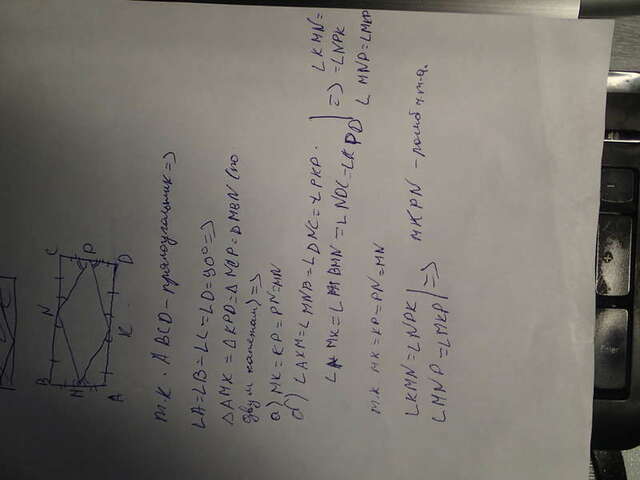 B N C
M P
A K D
т.к. ABCD - прямоугольник =>
∠A=∠B=∠C=∠D=90° =>
△AMK = △KPD = △NCP = △MBN (по
двум катетам) =>
а) MK = KP = PN = MN
б) ∠AKM = ∠MNB = ∠DNC = ∠PKD.
∠AMK = ∠BMN = ∠NDC = ∠KPD | => ∠KMN =
= ∠NPK
∠MNP = ∠MKP
т.к MK = KP = PN = MN
∠KMN = ∠NPK
∠MNP = ∠MKP | => MKPN - ромб ч.т.д.